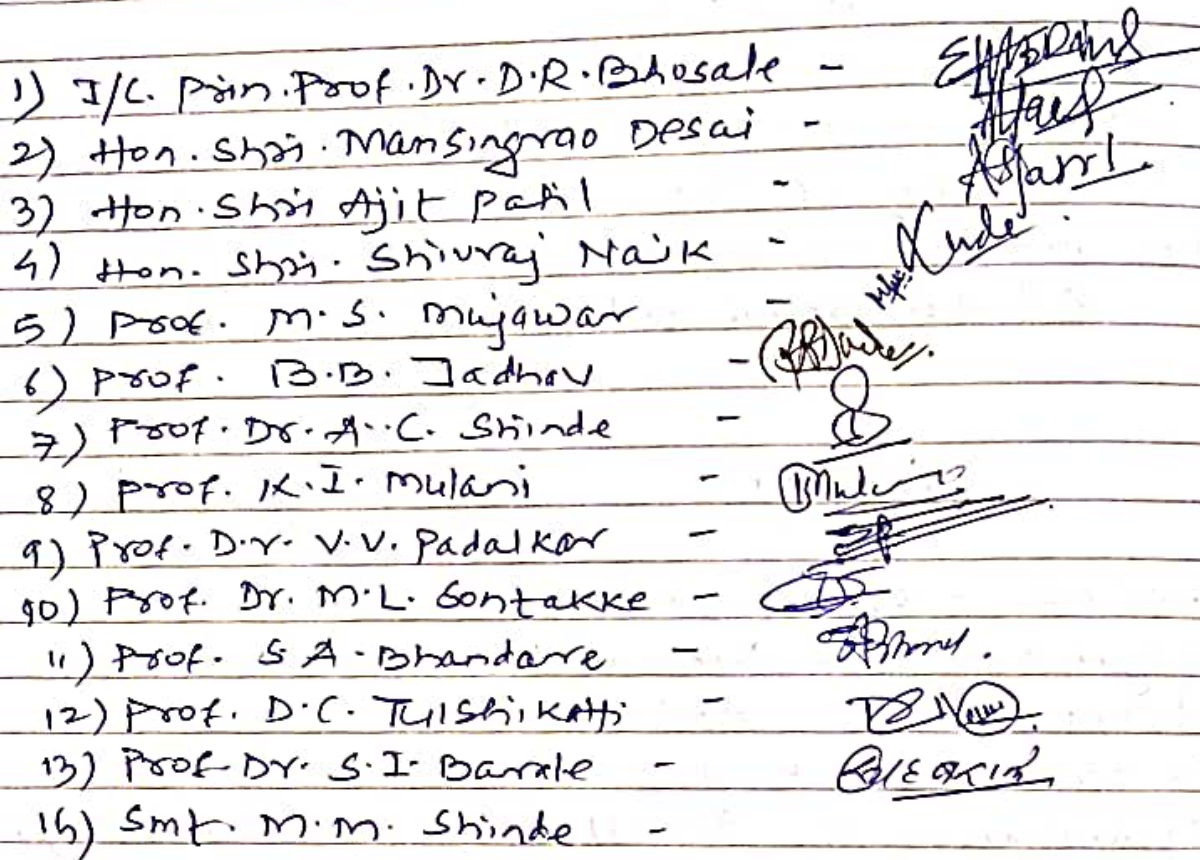 1) I/C. Prin. Prof. Dr. D.R. Bhosale -
2) Hon. Shri. Mansingrao Desai -
3) Hon. Shri Ajit Patil -
4) Hon. Shri. Shivraj Naik -
5) Prof. M.S. Mujawar -
6) Prof. B.B. Jadhav -
7) Prof. Dr. A.C. Shinde -
8) Prof. K.I. Mulani -
9) Prof. Dr. V.V. Padalkar -
10) Prof. Dr. M.L. Sontakke -
11) Prof. S A. Bhandare -
12) Prof. D.C. Tulshikatti -
13) Prof. Dr. S.I. Barale -
14) Smt. M.M. Shinde -